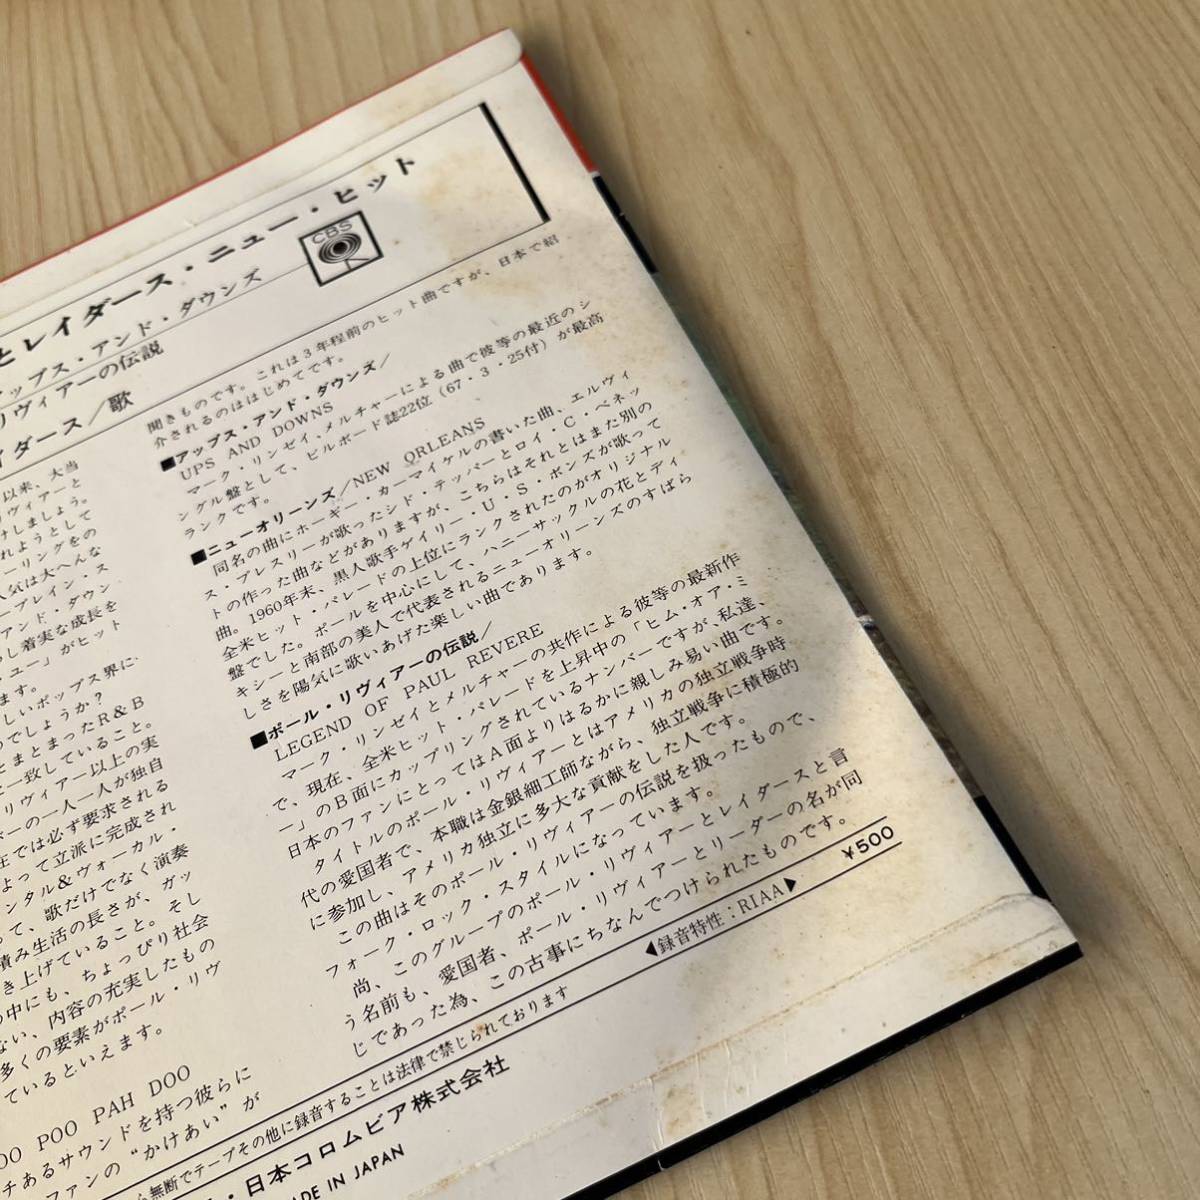 とレイダース・ニュー・ヒット
ップス・アンド・ダウンズ
リヴィアーの伝説
イダース/歌
CBS
以来、大当
リヴィアーと
けしましょう。
れようとして
ーリングをの
人気は大へんな
ープレイン・ス
アンド・ダウン
らし着実な成長を
ュー」がヒット
ます。
しいポップス界に
のでしょうか?
とまとまったR&B
と一致していること。
リヴィアー以上の実
バーの一人一人が独自
在では必ず要求される
よって立派に完成され
ンタル&ヴォーカル・
って、歌だけでなく演奏
積み生活の長さが、ガッ
き上げていること。そし
の中にも、ちょっぴり社会
ない、内容の充実したもの
多くの要素がポール・リヴ
ているといえます。
OO POO PAH DOO
チあるサウンドを持つ彼らに
ファンの“かけあい”が
聞きものです。これは3年程前のヒット曲ですが、日本で紹
介されるのははじめてです。
■アップス・アンド・ダウンズ/
UPS AND DOWNS
マーク・リンゼイ、メルチャーによる曲で彼等の最近のシ
ングル盤として、ビルボード誌22位(67・3・25付)が最高
ランクです。
■ニューオリーンズ/NEW ORLEANS
同名の曲にホーギー・カーマイケルの書いた曲、エルヴィ
ス・プレスリーが歌ったシド・テッパーとロイ・C・ベネッ
トの作った曲などがありますが、こちらはそれとはまた別の
曲。1960年末、黒人歌手ゲイリー・U・S・ボンズが歌って
全米ヒット・パレードの上位にランクされたのがオリジナル
盤でした。ポールを中心にして、ハニーサックルの花とディ
キシーと南部の美人で代表されるニューオリーンズのすばら
しさを陽気に歌いあげた楽しい曲であります。
■ポール・リヴィアーの伝説/
LEGEND OF PAUL REVERE
マーク・リンゼイとメルチャーの共作による彼等の最新作
で、現在、全米ヒット・パレードを上昇中の「ヒム・オア・ミ
ー」のB面にカップリングされているナンバーですが、私達、
日本のファンにとってはA面よりはるかに親しみ易い曲です。
タイトルのポール・リヴィアーとはアメリカの独立戦争時
代の愛国者で、本職は金銀細工師ながら、独立戦争に積極的
に参加し、アメリカ独立に多大な貢献をした人です。
この曲はそのポール・リヴィアーの伝説を扱ったもので、
フォーク・ロック・スタイルになっています。
尚、このグループのポール・リヴィアーとレイダースと言
う名前も、愛国者、ポール・リヴィアーとリーダーの名が同
じであった為、この古事にちなんでつけられたものです。
¥500
◀録音特性:RIAA▶
無断でテープその他に録音することは法律で禁じられております
・日本コロムビア株式会社
MADE IN JAPAN